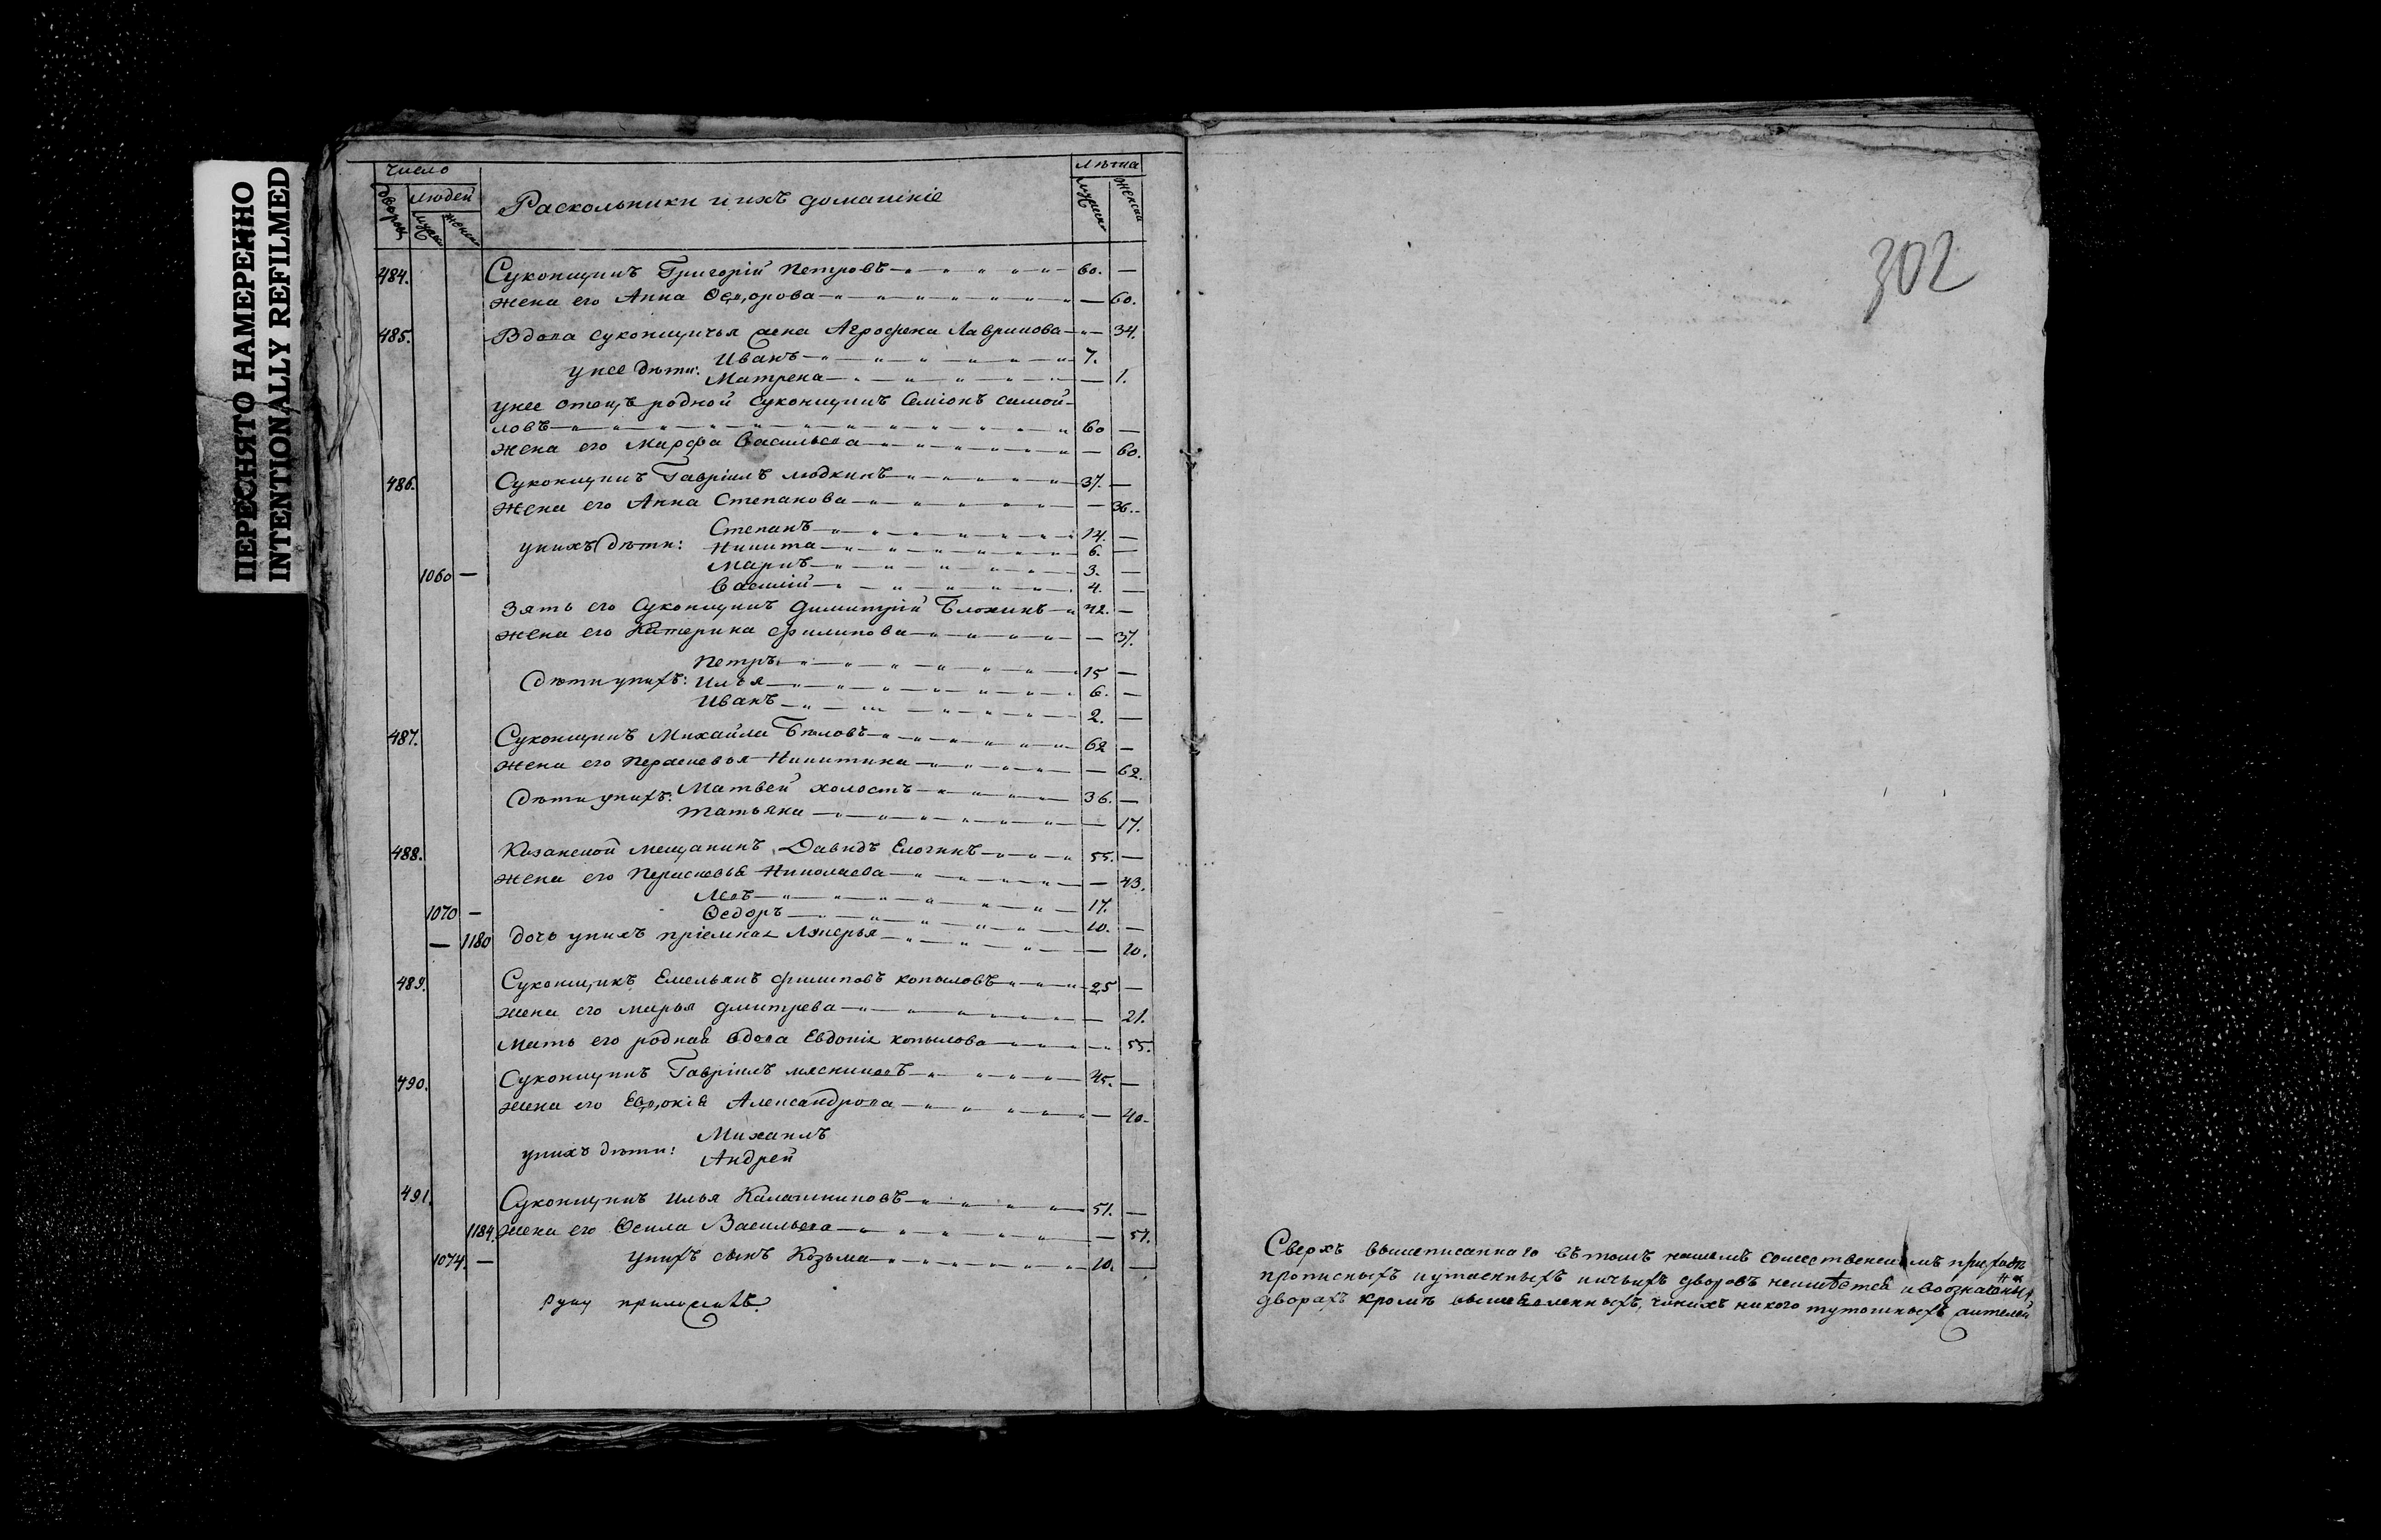 ПЕРЕСНЯТО НАМЕРЕННО
INTENTIONALLY REFILMED
Число
Лѣта
людей
Раскольники и ихъ домашніе
484. Суконщикъ Григорій Петровъ 60. —
жена его Анна Ѳедорова — 60.
485. Вдова суконщичья жена Агрофена Лавринова — 34.
у нее дѣти: Иванъ 7.
Матрена — 1.
у нее отецъ родной суконщикъ Семіонъ Самой-
ловъ 60 —
жена его Марфа Васильева — 60.
486. Суконщикъ Гавріилъ Людкинъ 37. —
жена его Анна Степанова — 36.
Степанъ 14. —
у нихъ дѣти: Никита 6. —
1060 — 3. —
Василій 4. —
Зять его суконщикъ Димитрій Блохинъ 42. —
жена его Катерина Филипова — 37.
Петръ 15 —
дѣти у нихъ: Илья 6. —
Иванъ 2. —
487. Суконщикъ Михайла Бѣловъ 62 —
жена его Парасковья Никитина — 62.
дѣти у нихъ: Матвей холостъ 36. —
Татьяна — 17.
488. Казанской мещанинъ Давидъ Елогинъ 55. —
жена его Параскевья Николаева — 43.
Левъ 17.
1070 — Ѳедоръ 10. —
— 1180 дочь у нихъ пріемная — 20.
489. Суконщикъ Емельянъ Филиповъ Копыловъ 25 —
жена его Марья Дмитрева — 21.
Мать его родная вдова Евдокія Копылова — 55.
490. Суконщикъ Гавріилъ Мясниковъ 45. —
жена его Евдокія Александрова — 40.
у нихъ дѣти: Михаилъ
Андрей
491. Суконщикъ Илья Калашниковъ 51. —
1184. жена его Ѳекла Васильева — 51.
1074. — у нихъ сынъ Козьма 10. —
руку приложилъ
302
Сверхъ вышеписаннаго въ томъ нашемъ приходѣ
прописныхъ и утаенныхъ ничьихъ дворовъ неимѣется и воозначенныхъ
дворахъ кромѣ никого жителей